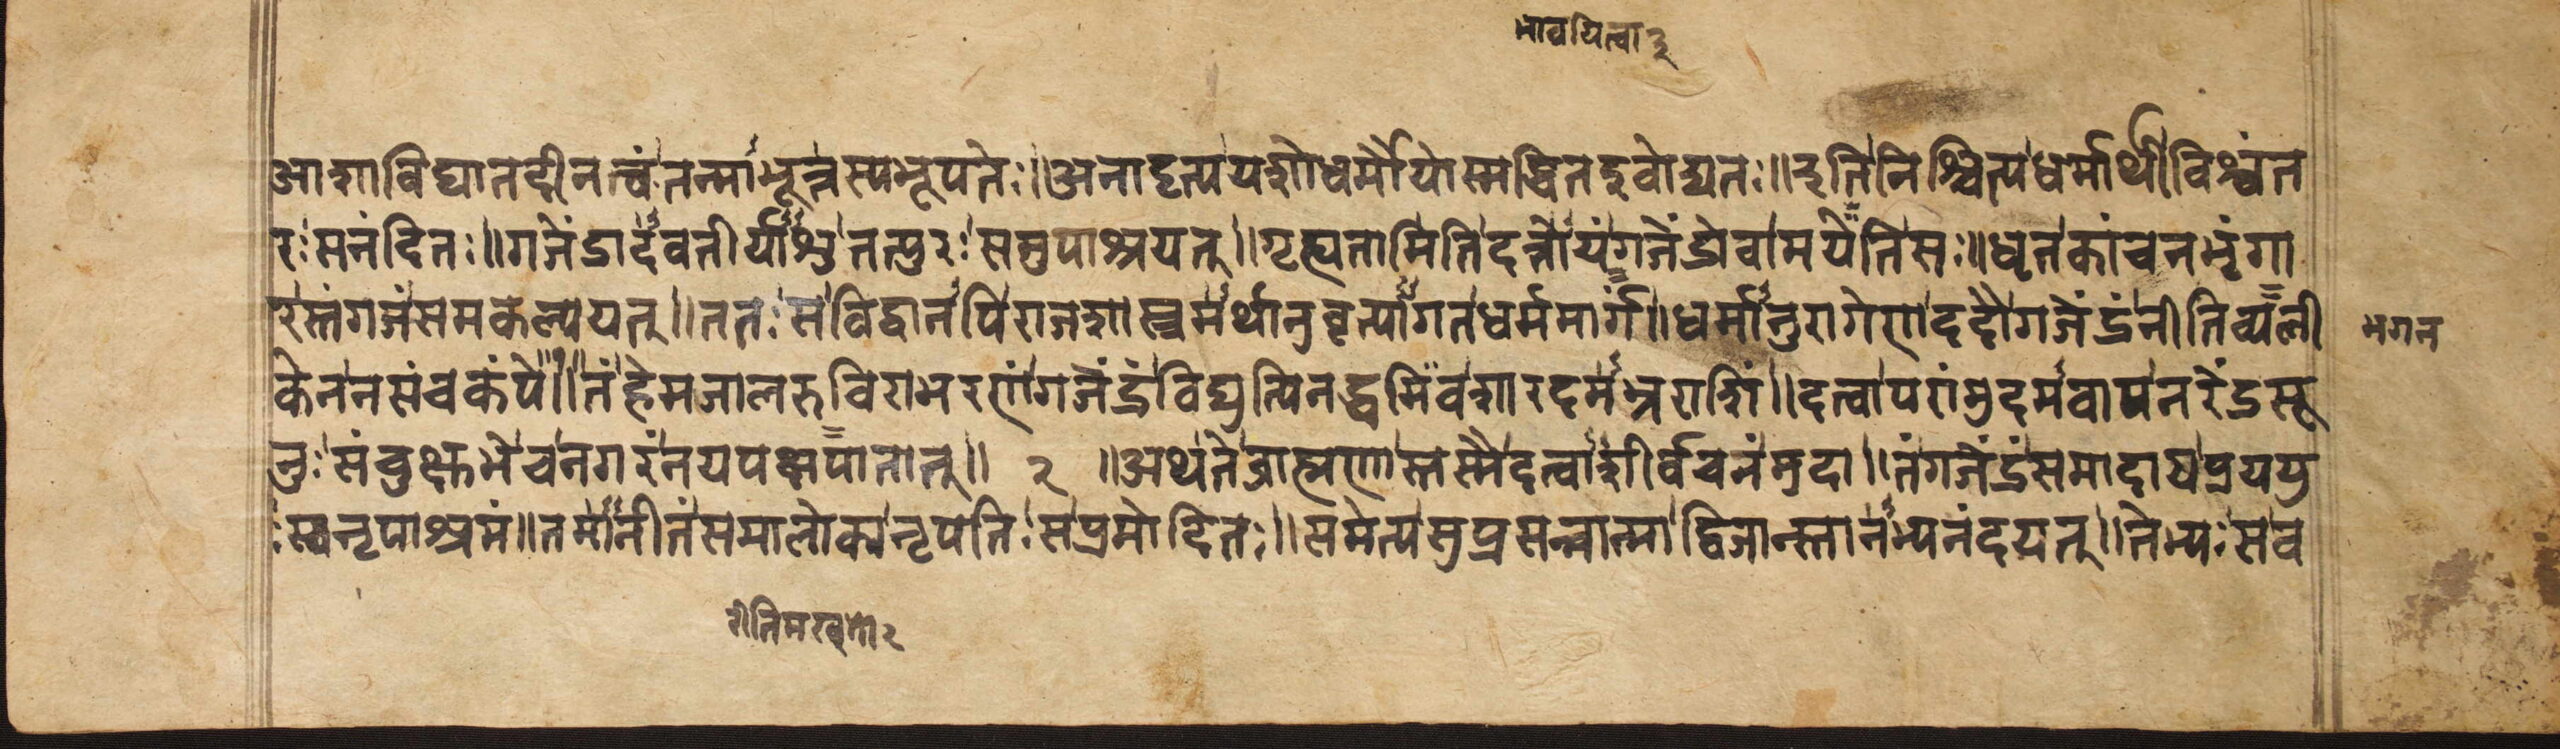 भावयित्वा ३
आशाविघातदीनत्वंतन्माभूत्तस्यभूपतेः॥अनादृत्ययशोधर्मौयोस्मद्धितइवोद्यतः॥इतिनिश्चित्यधर्मार्थीविश्वंत
रःसनंदितः॥गजेंद्रादवतीर्याशुतत्पुरःसमुपाश्रयत्॥गृह्यतामितिदत्तोयंगजेंद्रोवामयेतिसः॥धृतकांचनभृंगा
रस्तंगजंसमकल्पयत्॥ततःसविद्वानपिराजशास्त्रमर्थानुवृत्यागतधर्ममार्गं॥धर्मानुरागेणददौगजेंद्रंनीतिव्यली
भगन
केननसंचकंपे॥तंहेमजालरुचिराभरणंगजेंद्रंविद्युत्पिनद्धमिवशारदमभ्रराशिं॥दत्वापरांमुदमवापनरेंद्रसू
नुःसंचुक्षुभेचनगरंनयपक्षपातात्॥ २ ॥अथतेब्राह्मणास्तस्मैदत्वाशीर्वचनंमुदा॥तंगजेंद्रंसमादायप्रययु
ःस्वनृपाश्रमं॥तमानीतंसमालोक्यनृपतिःसप्रमोदितः॥समेत्यसुप्रसन्नात्माद्विजान्स्तानभ्यनंदयत्॥तेभ्यःसव